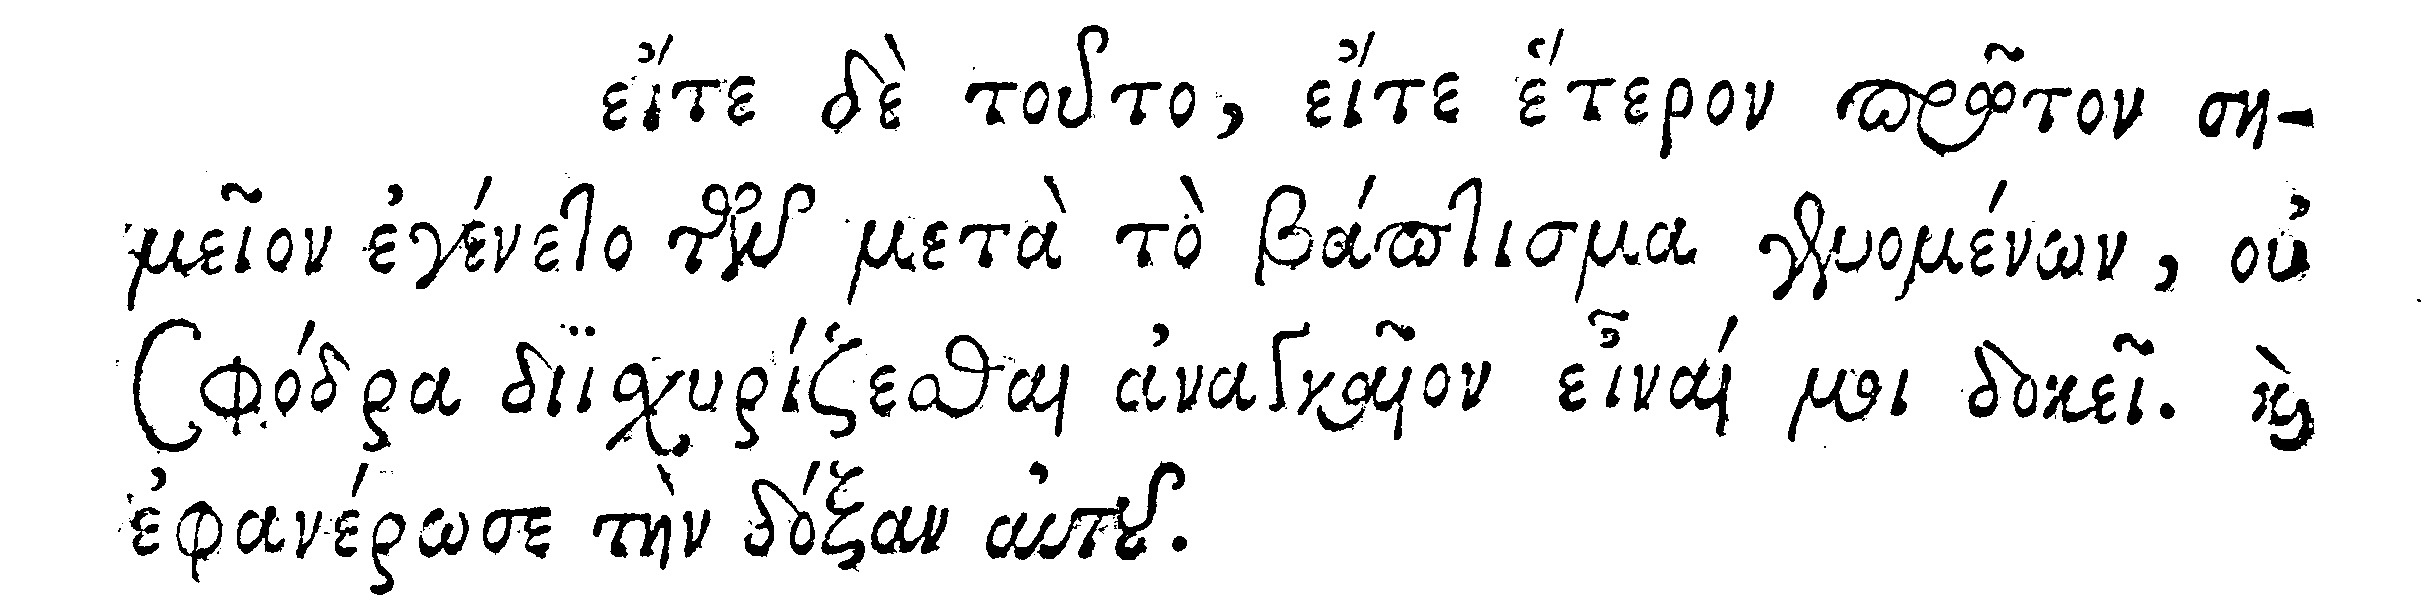 εἴτε δὲ τοῦτο, εἴτε ἕτερον πρῶτον ση-
μεῖον ἐγένετο τῶν μετὰ τὸ βάπτισμα γενομένων, οὐ
σφόδρα διϊσχυρίζεσθαι ἀναγκαῖον εἶναί μοι δοκεῖ. καὶ
ἐφανέρωσε τὴν δόξαν αὐτοῦ.